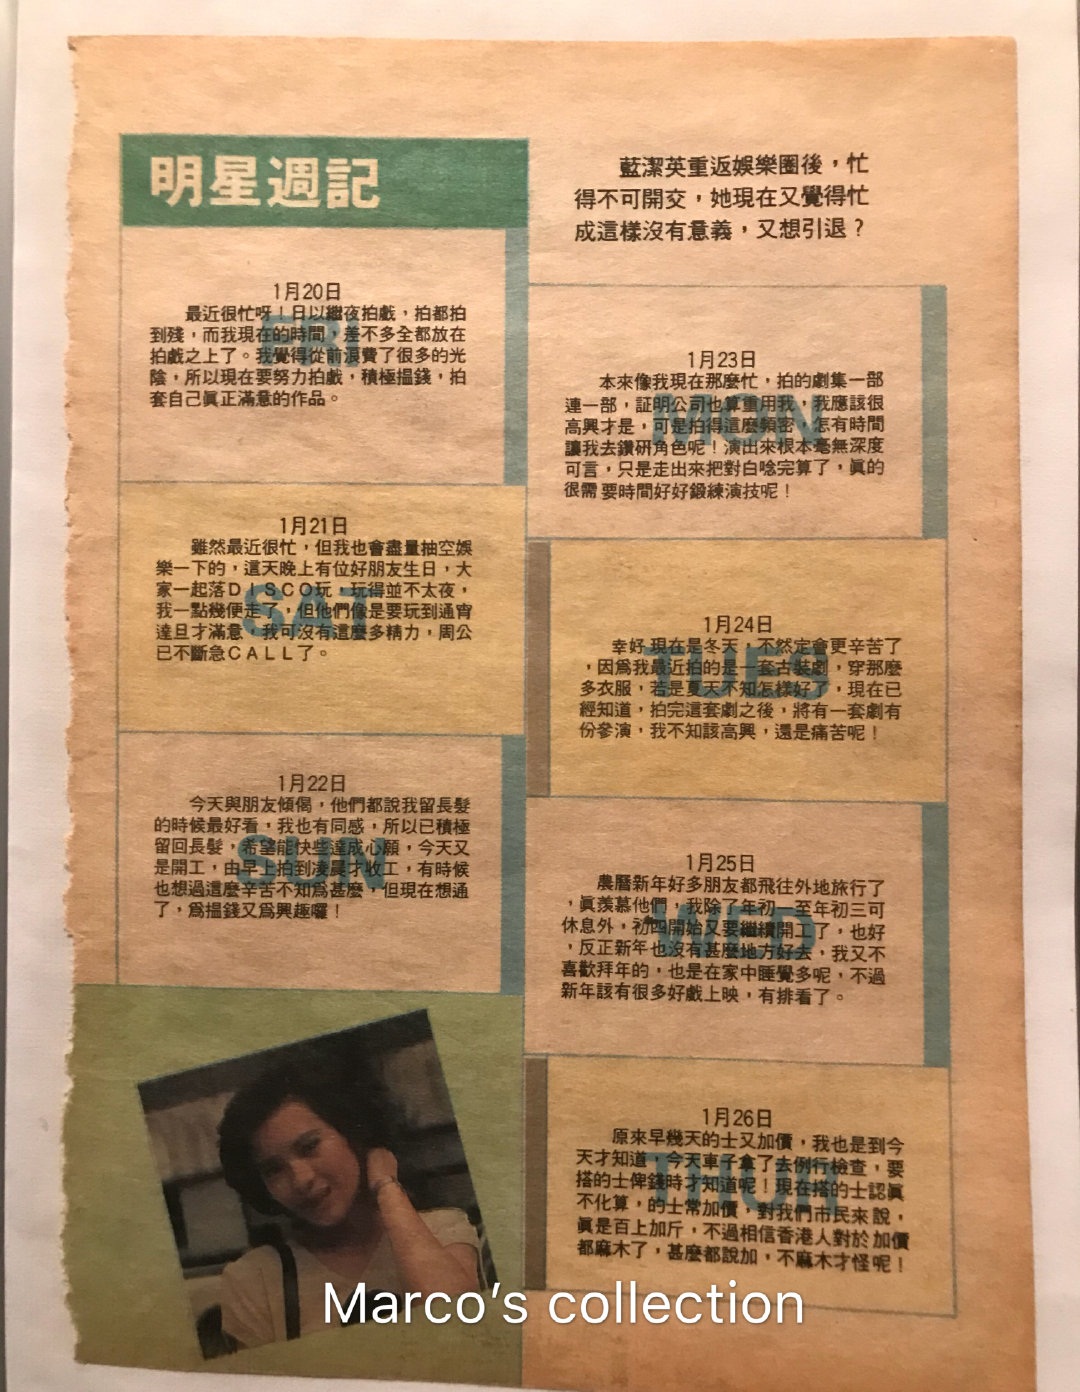 明星週記
藍潔英重返娛樂圈後，忙
得不可開交，她現在又覺得忙
成這樣沒有意義，又想引退？
FRI
1月20日
最近很忙呀！日以繼夜拍戲，拍都拍
到殘，而我現在的時間，差不多全都放在
拍戲之上了。我覺得從前浪費了很多的光
陰，所以現在要努力拍戲，積極搵錢，拍
套自己眞正滿意的作品。
SAT
1月21日
雖然最近很忙，但我也會盡量抽空娛
樂一下的，這天晚上有位好朋友生日，大
家一起落DISCO玩，玩得並不太夜，
我一點幾便走了，但他們像是要玩到通宵
達旦才滿意，我可沒有這麼多精力，周公
已不斷急CALL了。
SUN
1月22日
今天與朋友傾偈，他們都說我留長髮
的時候最好看，我也有同感，所以已積極
留回長髮，希望能快些達成心願，今天又
是開工，由早上拍到凌晨才收工，有時候
也想過這麼辛苦不知爲甚麼，但現在想通
了，爲搵錢又爲興趣囉！
MON
1月23日
本來像我現在那麼忙，拍的劇集一部
連一部，証明公司也算重用我，我應該很
高興才是，可是拍得這麼頻密，怎有時間
讓我去鑽研角色呢！演出來根本毫無深度
可言，只是走出來把對白唸完算了，眞的
很需要時間好好鍛練演技呢！
TUES
1月24日
幸好現在是冬天，不然定會更辛苦了
，因爲我最近拍的是一套古裝劇，穿那麼
多衣服，若是夏天不知怎樣好了，現在已
經知道，拍完這套劇之後，將有一套劇有
份參演，我不知該高興，還是痛苦呢！
WED
1月25日
農曆新年好多朋友都飛往外地旅行了
，眞羨慕他們，我除了年初一至年初三可
休息外，初四開始又要繼續開工了，也好
，反正新年也沒有甚麼地方好去，我又不
喜歡拜年的，也是在家中睡覺多呢，不過
新年該有很多好戲上映，有排看了。
THUR
1月26日
原來早幾天的士又加價，我也是到今
天才知道，今天車子拿了去例行檢查，要
搭的士俾錢時才知道呢！現在搭的士認眞
不化算，的士常加價，對我們市民來說，
眞是百上加斤，不過相信香港人對於加價
都麻木了，甚麼都說加，不麻木才怪呢！
Marco's collection